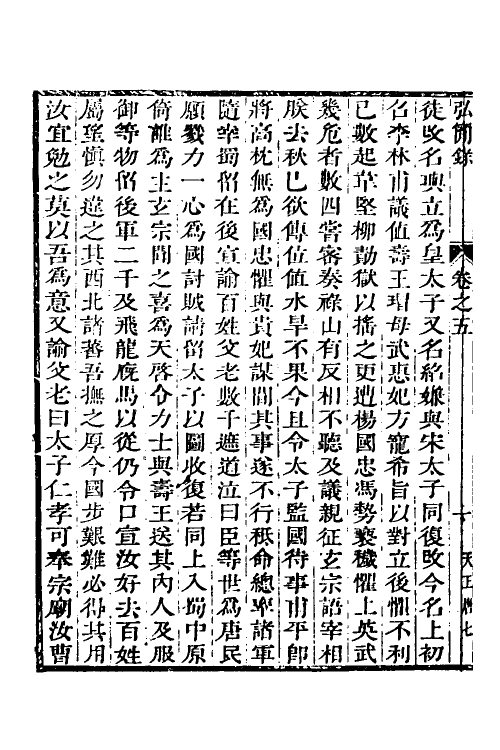 弘簡錄
卷之五
十
天正
七
徒改名璵立爲皇太子又名紹嫌與宋太子同復改今名上初
名李林甫議値壽王瑁母武惠妃方寵希旨以對立後懼不利
已數起韋堅柳勣獄以搖之更遭楊國忠馮勢褻懱懼上英武
幾危者數四嘗密奏祿山有反相不聽及議親征玄宗語宰相
朕去秋巳欲傳位値水旱不果今且令太子監國待事甫平卽
將高枕無爲國忠懼與貴妃謀間其事遂不行秪命總率諸軍
隨幸蜀留在後宣諭百姓父老數千遮道泣曰臣等世爲唐民
願戮力一心爲國討賊請留太子以圖收復若同上入蜀中原
倚誰爲主玄宗聞之喜爲天啓令力士與壽王送其內人及服
御等物留後軍二千及飛龍廐馬以從仍令口宣汝好去百姓
屬望愼勿違之其西北諸蕃吾撫之厚今國步艱難必得其用
汝宜勉之莫以吾爲意又諭父老曰太子仁孝可奉宗廟汝曹